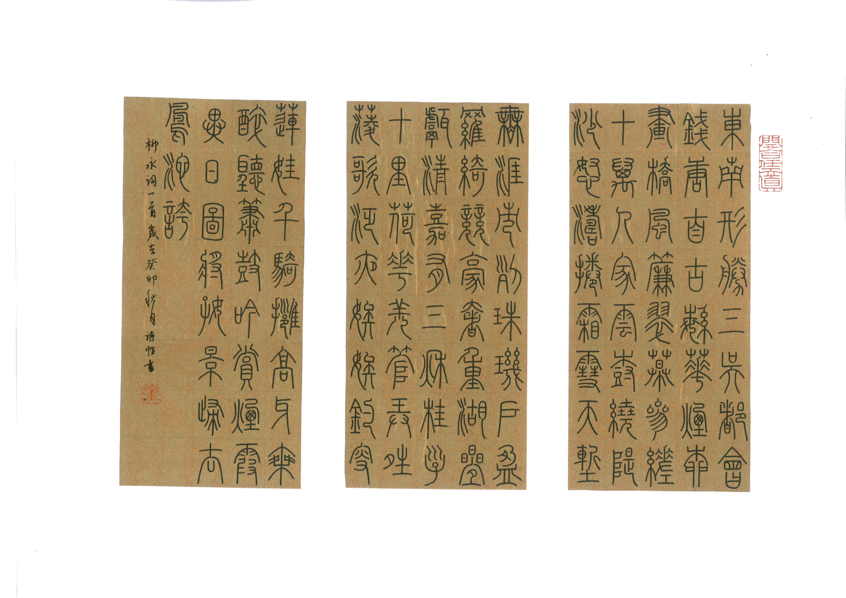 東南形勝三吳都會
錢唐自古繁華煙柳
畫橋風簾翠幕參差
十萬人家雲樹繞隄
沙怒濤捲霜雪天塹
無涯市列珠璣戶盈
羅綺競豪奢重湖疊
巘清嘉有三秋桂子
十里荷花羌管弄晴
菱歌泛夜嬉嬉釣叟
蓮娃千騎擁高牙乘
醉聽簫鼓吟賞煙霞
異日圖將好景歸去
鳳池誇
柳永詞一首歲在癸卯秋月書